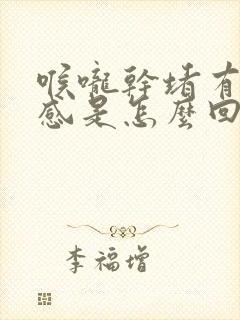 喉嚨幹堵有
感是怎麼回
李福增